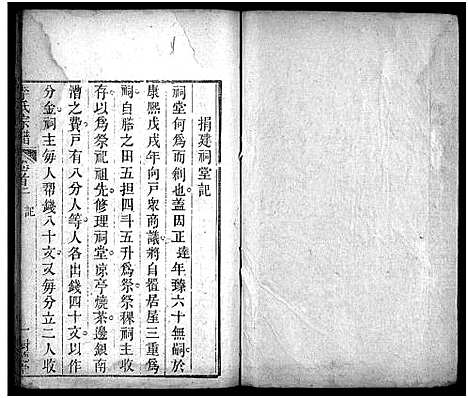 捐建祠堂記
祠堂何為而剏也蓋因正達年臻六十無嗣於
康熙戊戌年向戶衆商議將自置居屋三重為
祠自膳之田五担四斗五升為祭祭稞祠主所
存以為祭祀祖先修理祠堂凉亭燒茶邊銀南
漕之費戶有八分人等人各出錢四十文以作
分金祠主每人帮錢八十文又每分立二人收
氏宗譜
記
一